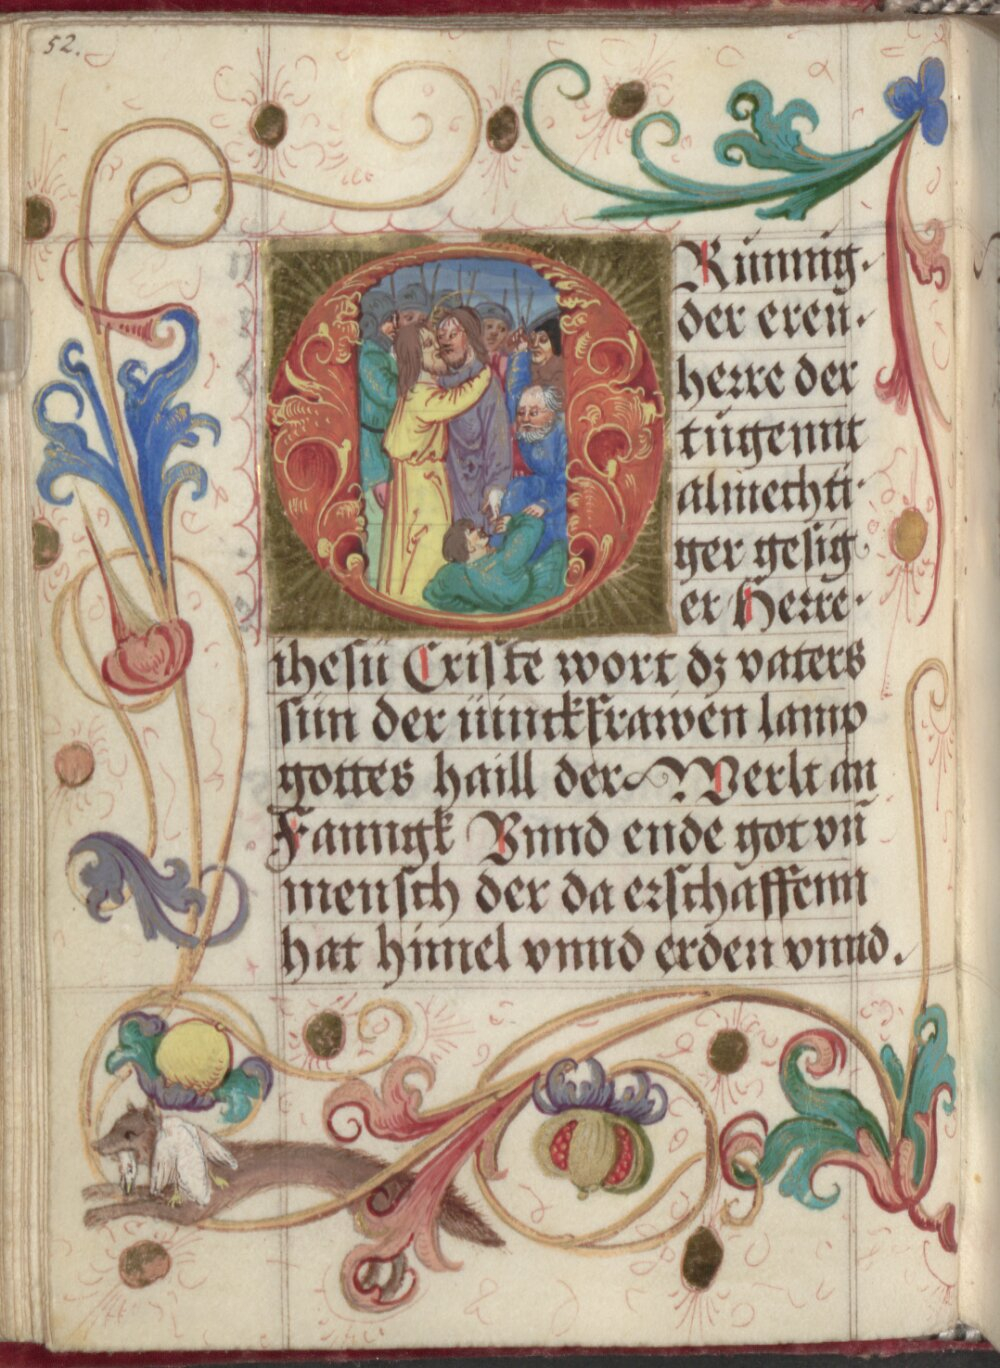 52.
O Künnig
der eren
herre der
tugennt
almechti
ger gesig
er Herre
ihesu Criste wort dz vaters
sun der iunckfrawen lamp
gottes haill der Werlt an
Fanngk Vnnd ende got vn̄
mensch der da erschaffenn
hat himel vnnd erden vnnd.